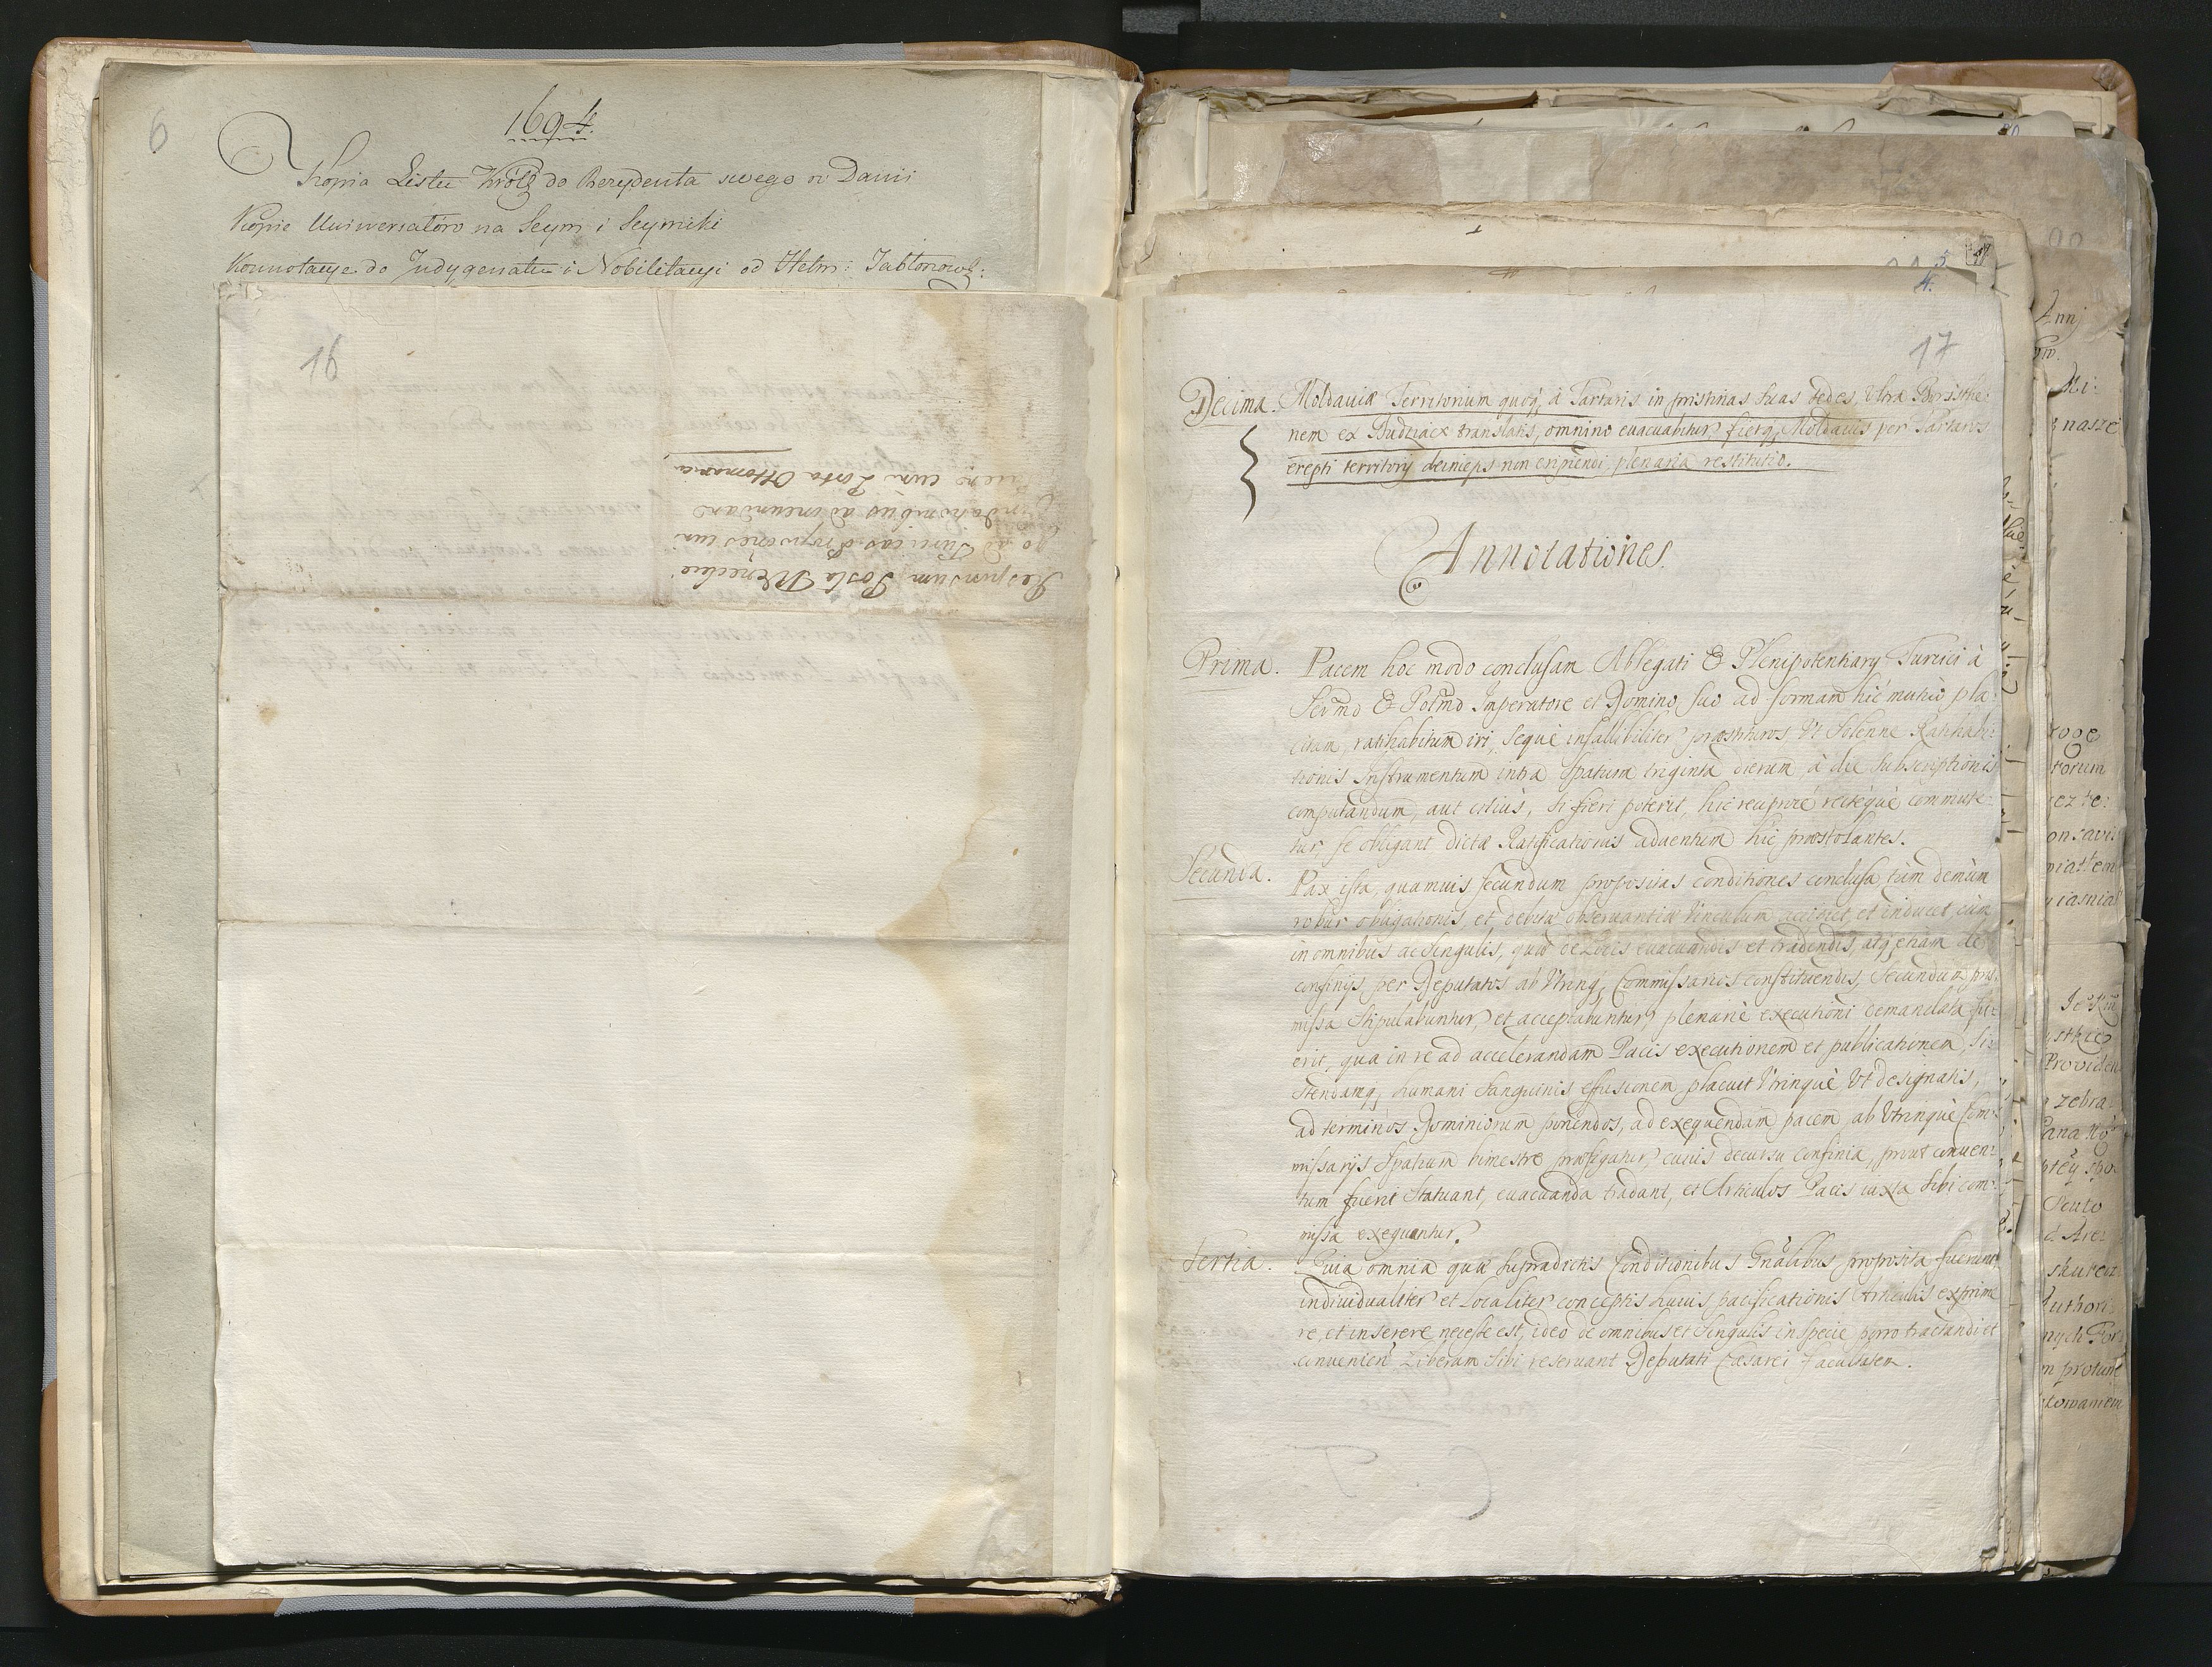 6
1694.
Kopia Listu Króla do Rezydenta swego w Danii
Kopie Uniwersałów na Seym i Seymiki
Konnotacye do Indygenatu i Nobilitacyi od Hetm: Jabłonows:
16
Responsum Posła Weneckie
go ad Turcicas Propositiones cum
ad ineundam
Pacem cum Porta Ottomana
17
4.
Decima. Moldauiæ Territorium quoq; à Tartaris in pristinas suas sedes, Vltra Boristhe:
nem ex Budziack translatis, omnino euacuabitur, fietq; Moldauis per Tartaros
erepti territorij deinceps non eripiendi plenaria restitutio.
Annotationes.
Prima. Pacem hoc modo conclusam Ablegati & Plenipotentiarij Turcici à
Sermo & Potmo Imperatore et Domino suo ad formam hic mutuò pla:
citam, ratihabitum iri, seque infallibiliter præstituros Vt Solenne Ratihabi:
tionis Instrumentum intra spatium triginta dierum, à die subscriptionis
computandum, aut citius, si fieri poterit, hic reciprocè ritèque commute:
tur, se obligant, dictæ Ratificationis aduentum hic præstolantes.
Secunda. Pax ista, quamuis secundum propositas conditiones conclusa, tum demùm
robur obligationis, et debitæ obseruantiæ Vinculum accipiet, et inducet, cùm
in omnibus ac singulis, quæ de Locis euacuandis et tradendis, atq; etiam de
confinijs, per Deputatos ab Vtrinq; Commissarios constituendis, Secundum præ:
missa Stipulabuntur, et acceptabuntur, plenariè executioni demandata fu:
erit, qua in re ad accelerandam Pacis executionem et publicationem, si:
stendamq; humani sanguinis effusionem placuit Vtrinquè Vt designatis,
ad terminos Dominiorum ponendos, ad exequendam pacem ab Vtrinquè Com:
missarijs Spatium bimestre præfigatur, cuius decursu Confinia, prout conuen:
tum fuerit Statuant, euacuanda tradant, et Articulos Pacis iuxta Sibi com:
missa exequantur.
Tertia. Quia omnia quæ supradictis Conditionibus Gnalibus, proposita fuerunt,
indiuidualiter et Localiter conceptis huius pacificationis Articulis exprime
re, et inserere necesse est, ideo de omnibus et singulis in specie porro tractandi et
conueniendi Liberam Sibi reseruant Deputati Cæsarei facultatem.